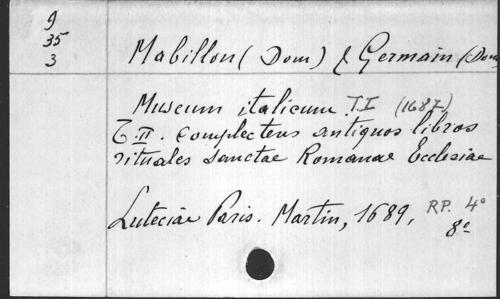 9
35
3
Mabillon (Dom) & Germain (Dom
Museum italicum T.I (1687)
T.II. complectens antiquos libros
rituales sanctae Romanae Ecclesiae
Luteciae Paris. Martin, 1689, RP. 4°
8°